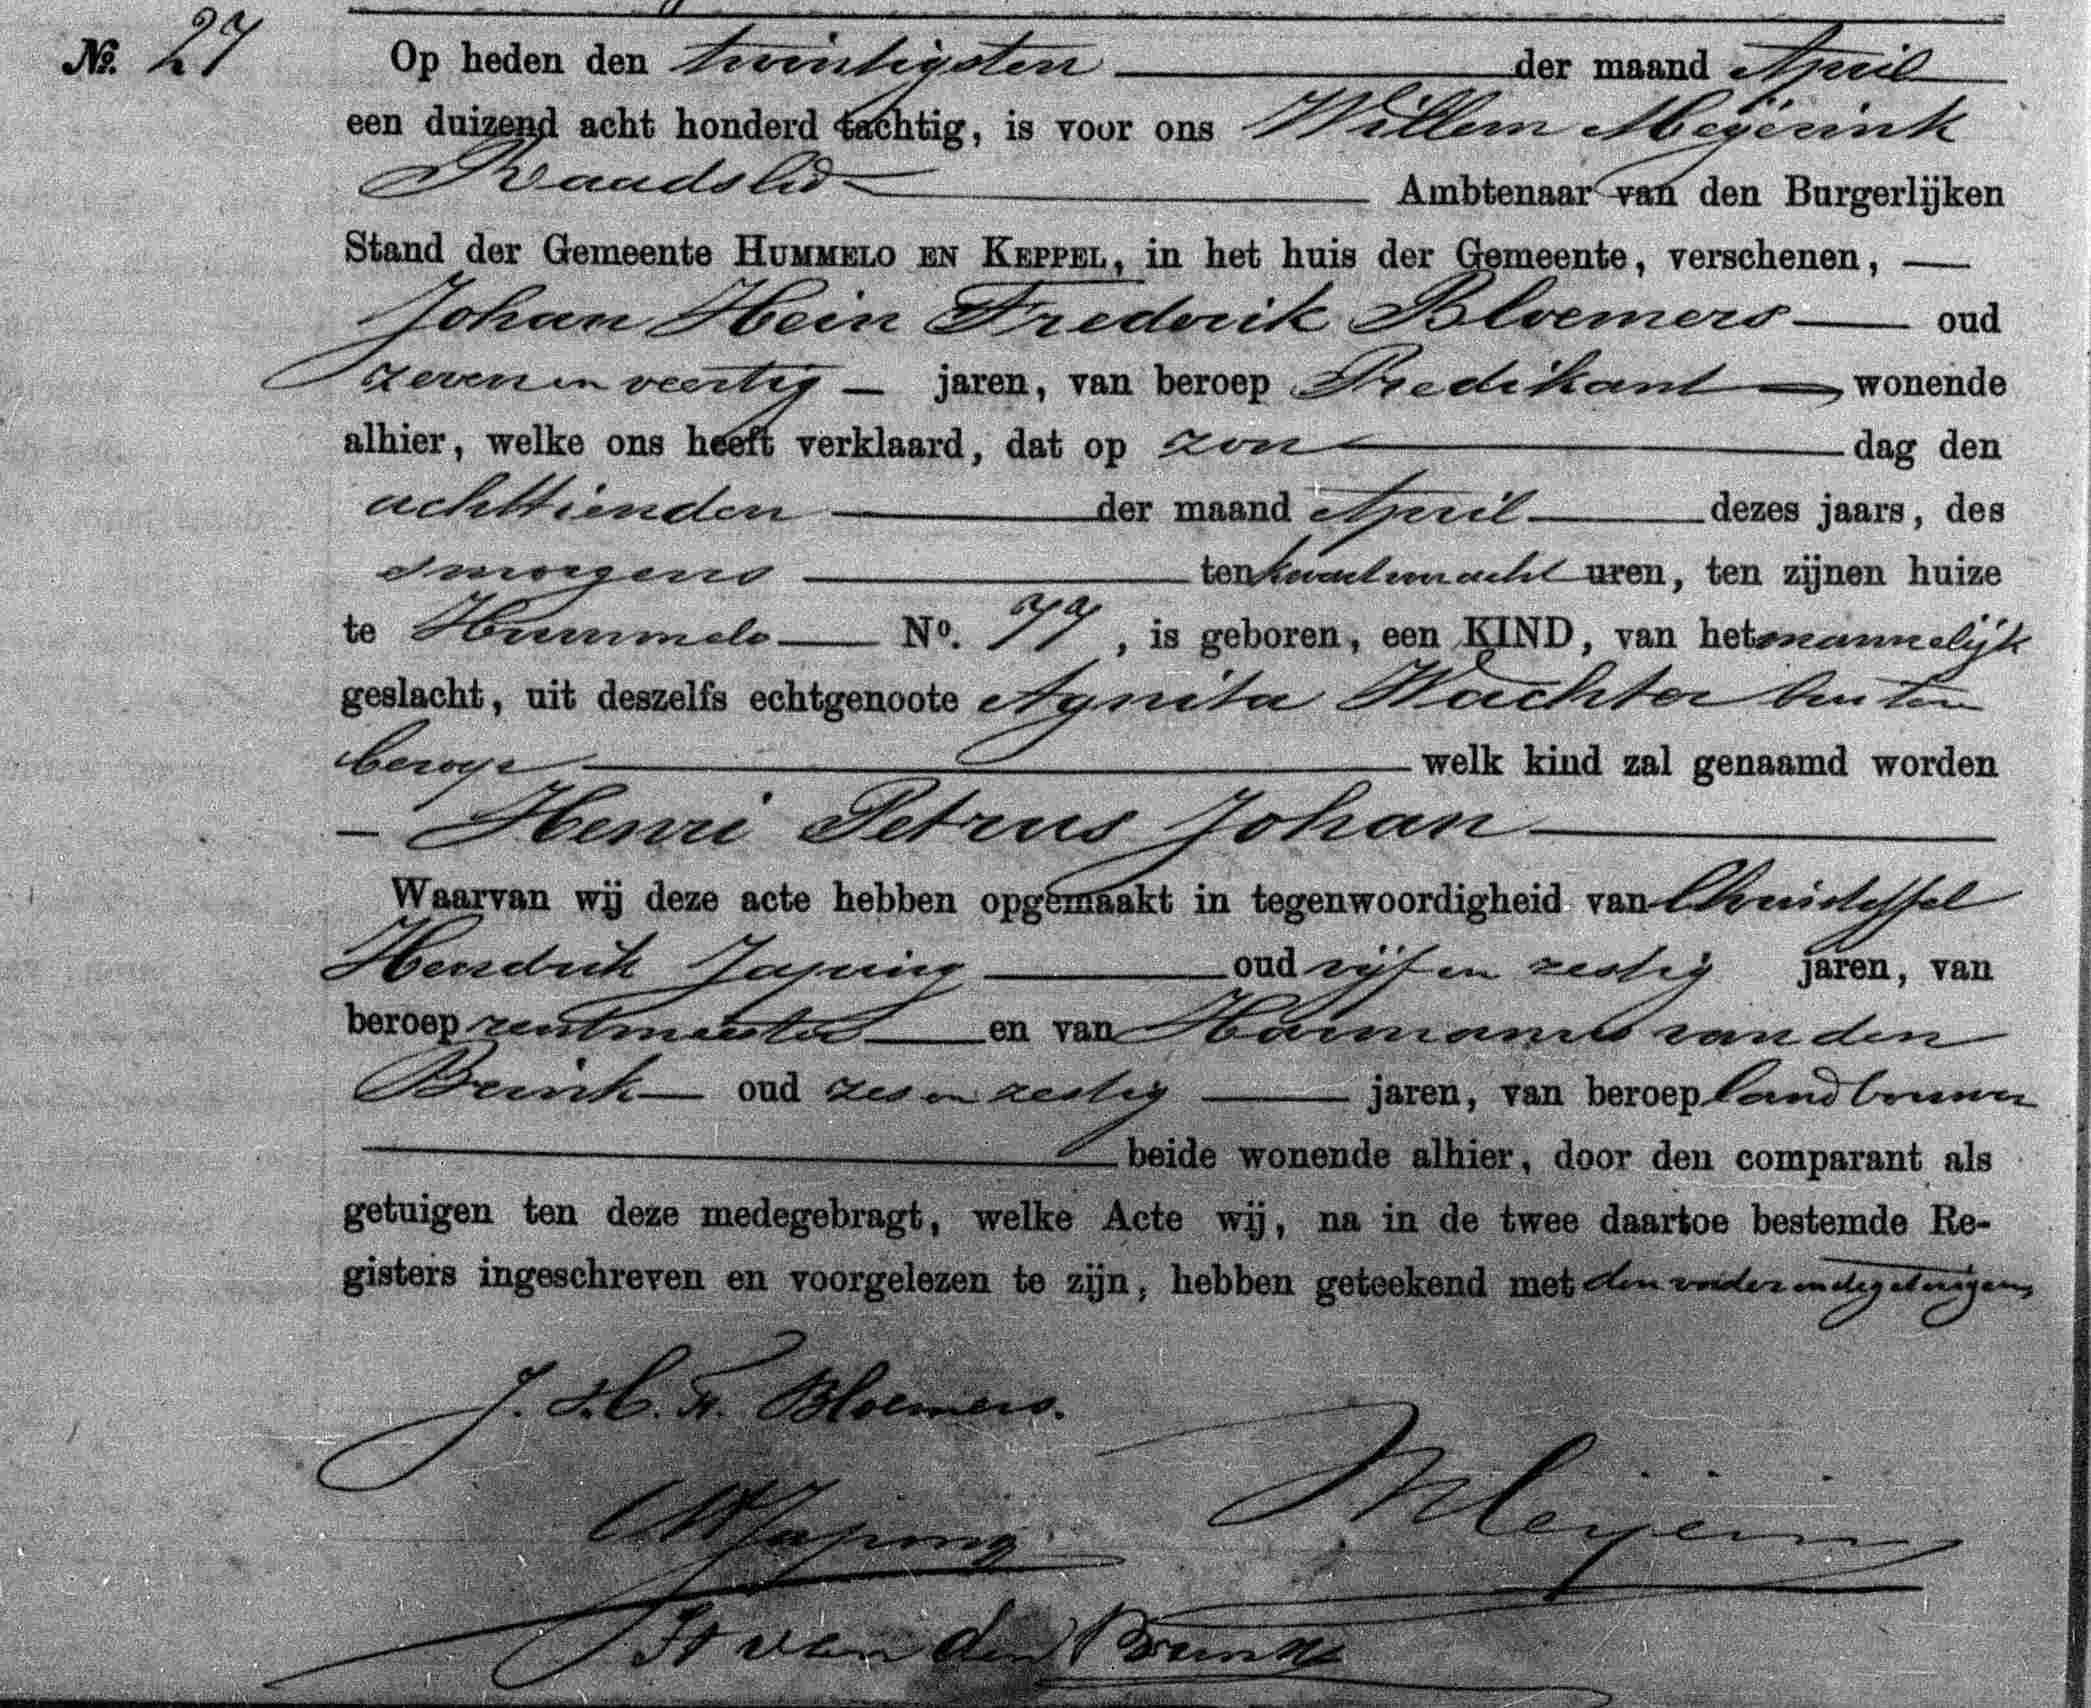 No. 27 Op heden den twintigsten der maand April
een duizend acht honderd tachtig, is voor ons Willem Meijerink
Raadslid Ambtenaar van den Burgerlijken
Stand der Gemeente HUMMELO EN KEPPEL, in het huis der Gemeente, verschenen,
Johan Hein Frederik Bloemers oud
zeven en veertig jaren, van beroep Predikant wonende
alhier, welke ons heeft verklaard, dat op zon dag den
achttienden der maand April dezes jaars, des
smorgens ten kwart voor acht uren, ten zijnen huize
te Hummelo No. 77, is geboren, een KIND, van het mannelijk
geslacht, uit deszelfs echtgenoote Agnita Wachter buiten
beroep welk kind zal genaamd worden
Henri Petrus Johan
Waarvan wij deze acte hebben opgemaakt in tegenwoordigheid van Christoffel
Hendrik Japing oud vijf en zestig jaren, van
beroep rentmeester en van Harmanus van den
Brink oud zes en zestig jaren, van beroep landbouwer
beide wonende alhier, door den comparant als
getuigen ten deze medegebragt, welke Acte wij, na in de twee daartoe bestemde Re-
gisters ingeschreven en voorgelezen te zijn, hebben geteekend met den vader en de getuigen,
J. H. F. Bloemers.
CHJaping
Meijerink
H van den Brink